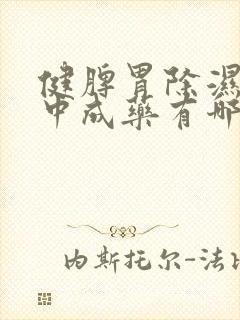 健脾胃除濕
中成藥有哪
内斯托尔-法比